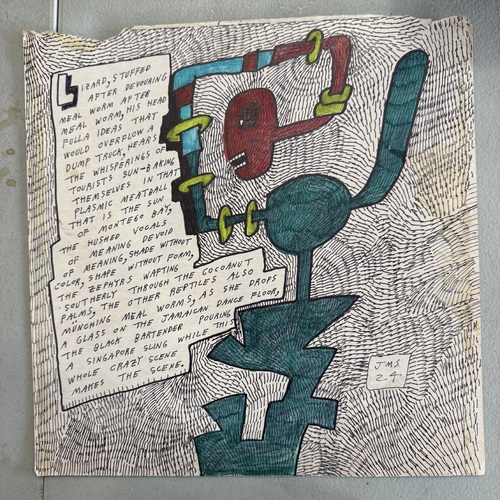 LIZARD, STUFFED
AFTER DEVOURING
MEAL WORM AFTER
MEAL WORM, HIS HEAD
FULLA IDEAS THAT
WOULD OVERFLOW A
DUMP TRUCK, HEARS
THE WHISPERINGS OF
TOURISTS SUN-BAKING
THEMSELVES IN THAT
PLASMIC MEATBALL
THAT IS THE SUN
OF MONTEGO BAY,
THE HUSHED VOCALS
OF MEANING DEVOID
OF MEANING, SHADE WITHOUT
COLOR, SHAPE WITHOUT FORM,
THE ZEPHYRS WAFTING
SOUTHERLY THROUGH THE COCOANUT
PALMS, THE OTHER REPTILES ALSO
MUNCHING MEAL WORMS, AS SHE DROPS
A GLASS ON THE JAMAICAN DANCE FLOOR,
THE BLACK BARTENDER POURING
A SINGAPORE SLING WHILE THIS
WHOLE CRAZY SCENE
MAKES THE SCENE.
JMS
24